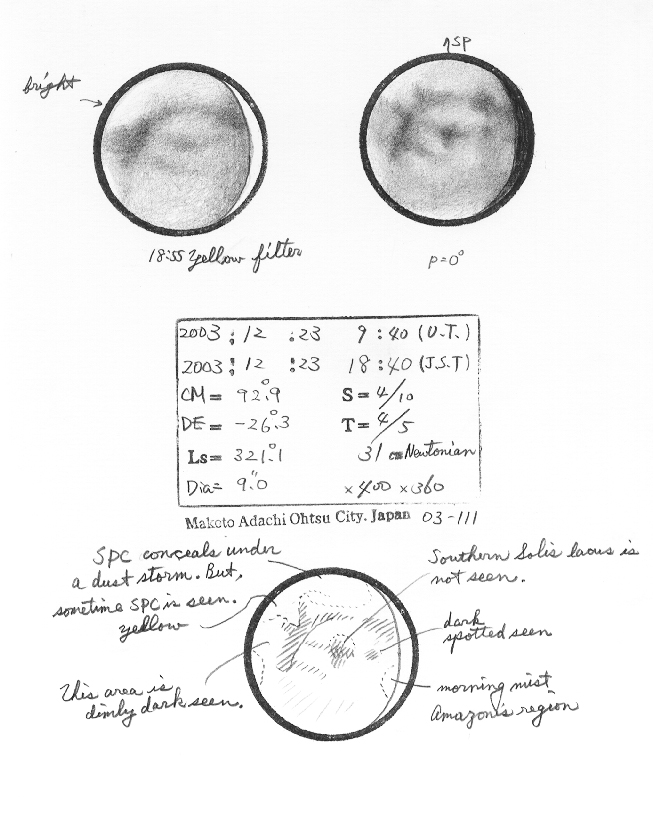 bright
↑SP
18:55 Yellow filter
P=0°
2003 : 12 : 23 9 : 40 (U.T.)
2003 : 12 : 23 18 : 40 (J.S.T)
CM = 92°.9 S = 4/10
DE = -26°.3 T = 4/5
Ls = 321°.1 31 cm Newtonian
Dia = 9".0 ×400 ×360
Makoto Adachi Ohtsu City. Japan 03-111
SPC conceals under
a dust storm. But,
sometime SPC is seen.
yellow
This area is
dimly dark seen.
Southern Solis lacus is
not seen.
dark
spotted seen
morning mist
Amazonis region